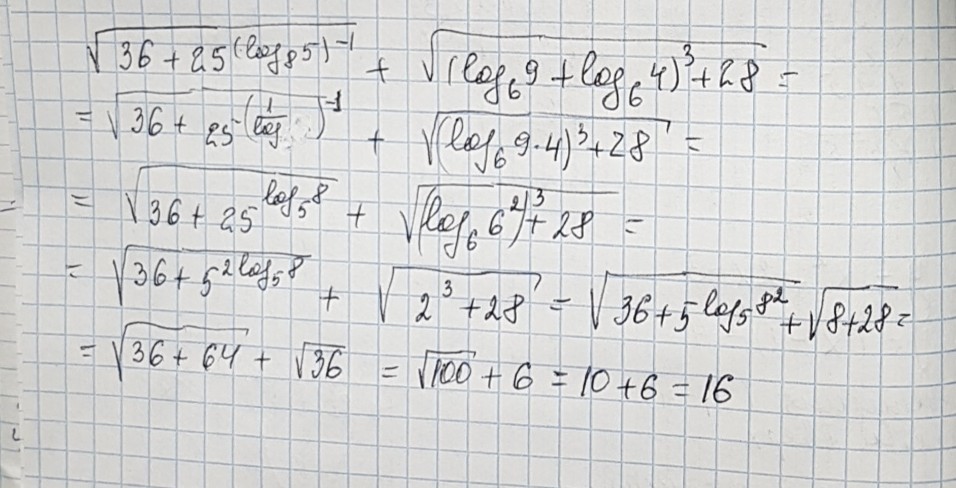 √(36 + 25^(log₈5)^-1) + √((log₆9 + log₆4)³ + 28) =
= √(36 + 25^(1/log)^-1) + √((log₆9·4)³ + 28) =
= √(36 + 25^log₅8) + √((log₆6²)³ + 28) =
= √(36 + 5^2log₅8) + √(2³ + 28) = √(36 + 5^log₅8²) + √(8+28) =
= √(36 + 64) + √36 = √100 + 6 = 10 + 6 = 16